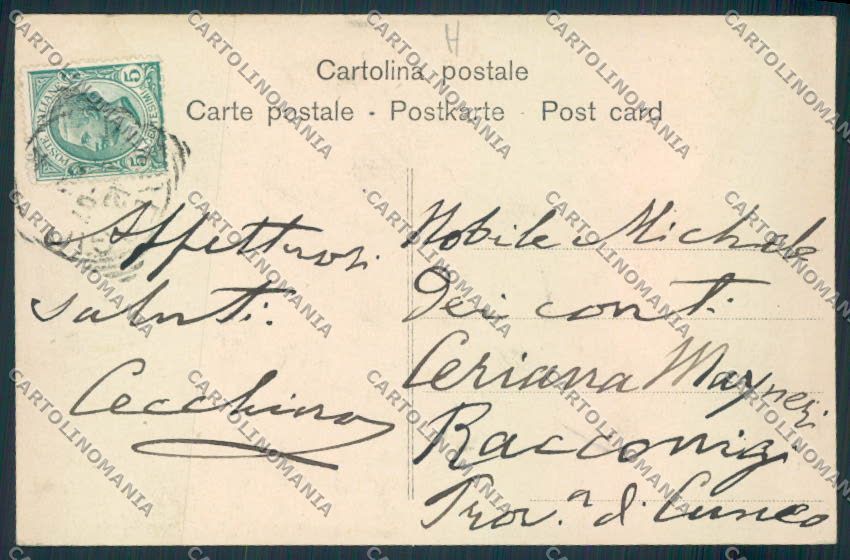 H
Cartolina postale
Carte postale - Postkarte Post card
POSTE ITALIANE
5 CENTESIMI 5
Affettuosi
saluti.
Cecchino
Nobile Michele
Dei conti
Ceriana Mayneri
Racconigi
Prov.a di Cuneo
CARTOLINOMANIA